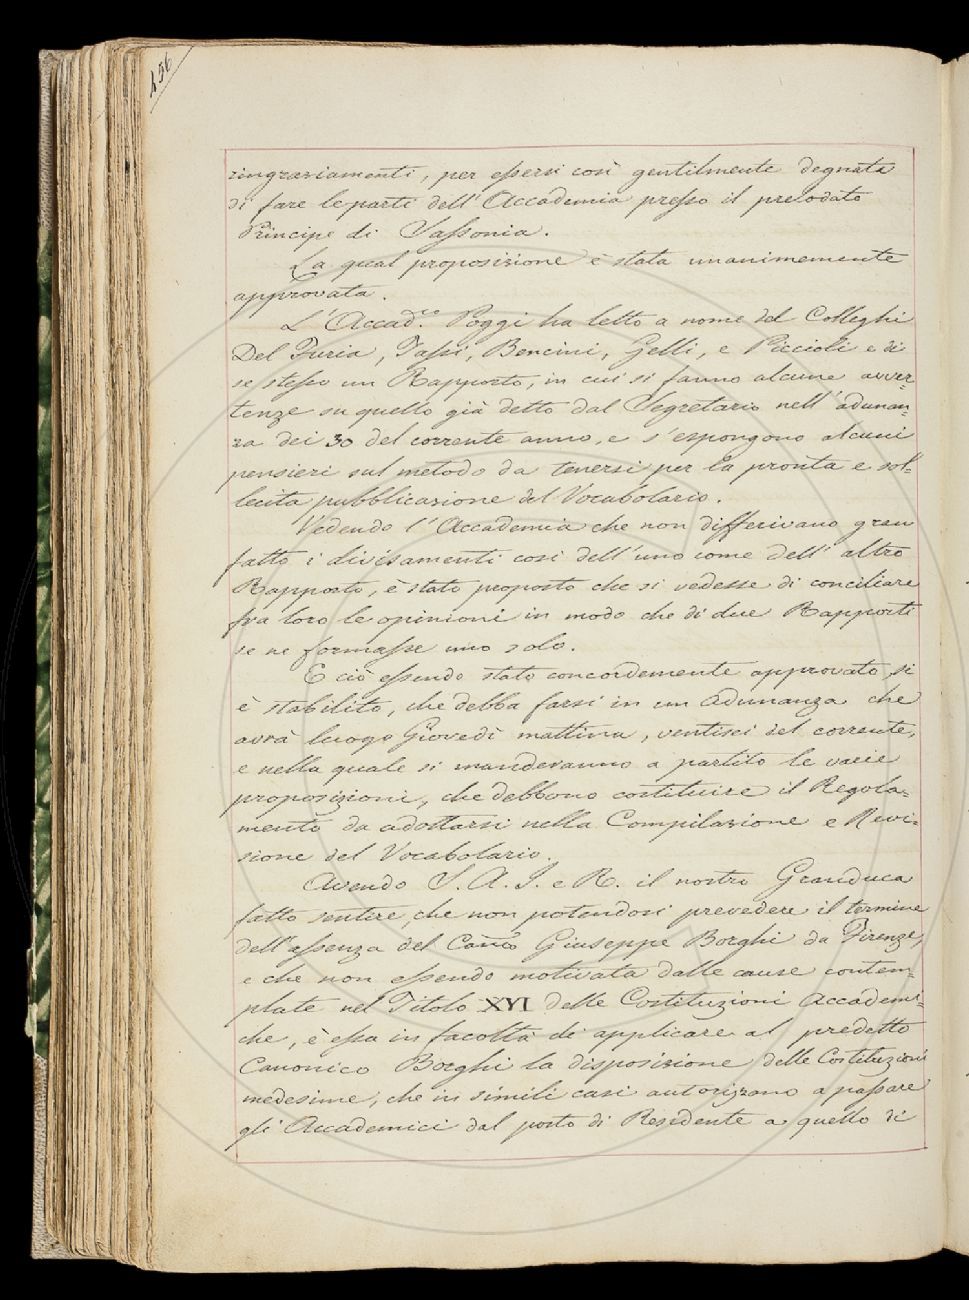 156
ringraziamenti, per essersi così gentilmente degnata
di fare le parti dell'Accademia presso il prelodato
Principe di Sassonia.
La qual proposizione è stata unanimemente
approvata.
L'Accad.co Poggi ha letto a nome del Colleghi
Del Furia, Tassi, Bencini, Gelli, e Piccioli e di
se stesso un Rapporto, in cui si fanno alcune avver=
tenze su quello già detto dal Segretario nell'adunan=
za dei 30 del corrente anno, e s'espongono alcuni
pensieri sul metodo da tenersi per la pronta e sol=
lecita pubblicazione del Vocabolario.
Vedendo l'Accademia che non differivano gran
fatto i divisamenti così dell'uno come dell'altro
Rapporto, è stato proposto che si vedesse di conciliare
fra loro le opinioni in modo che di due Rapporti
se ne formasse uno solo.
E ciò essendo stato concordemente approvato si
è stabilito, che debba farsi in un Adunanza che
avrà luogo Giovedì mattina, ventisei del corrente,
e nella quale si manderanno a partito le varie
proposizioni, che debbono costituire il Regola=
mento da adottarsi nella Compilazione e Revi=
sione del Vocabolario.
Avendo S. A. I. e R. il nostro Granduca
fatto sentire, che non potendosi prevedere il termine
dell'assenza del Can.co Giuseppe Borghi da Firenze,
e che non essendo motivata dalle cause contem=
plate nel Titolo XVI delle Costituzioni Accademi=
che, è essa in facoltà di applicare al predetto
Canonico Borghi la disposizione delle Costituzioni
medesime, che in simili casi autorizzano a passare
gli Accademici dal posto di Residente a quello di